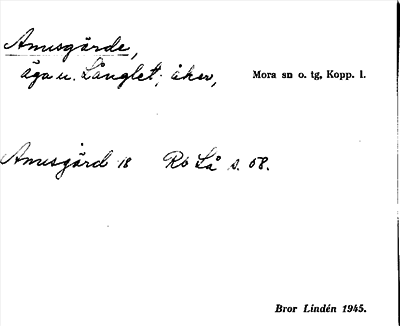 Amusgärde,
äga u. Långlet; åker, Mora sn o. tg, Kopp. l.
Amusgärd 18 Rö Lå s. 58.
Bror Lindén 1945.